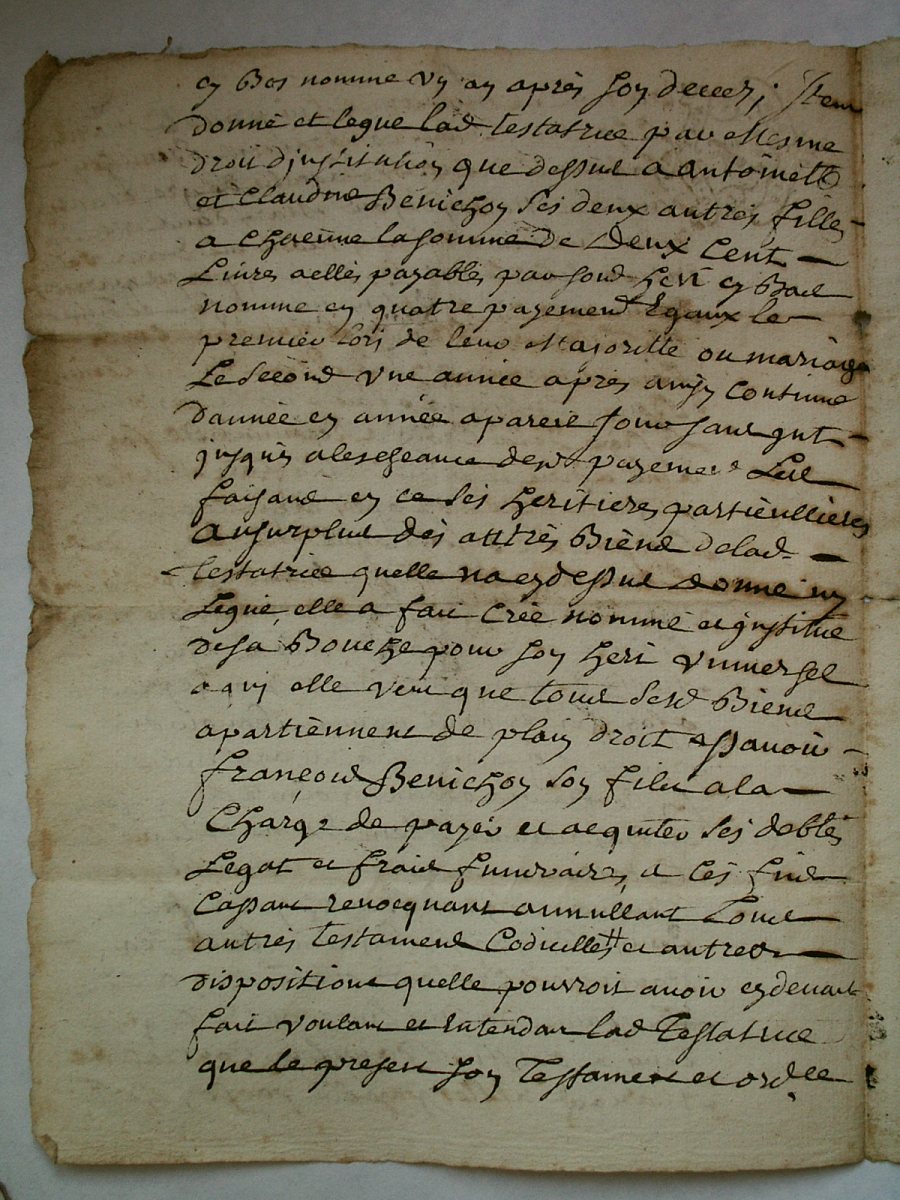 ey bas nomme un an apres son deces ; Item
donne et legue lad testatrice par mesme
droit dinstitution que dessus a Antoinette
et Claudine Benichon ses deux autres filles
a chacune la somme de deux cent
livres a elles payables par sond heri ey bas
nomme en quatre payement Egaux le
premier lors de leur majoritte ou mariage
Le second une annee apres ainsy continue
dannee en annee a pareil jour sans
jusques a lescheance desd payement Les
faisand en ce ses heritieres particullieres
au surplus des auttres Biens de lad
testatrice quelle na cy dessus donne ny
Legue, elle a fait cree nomme et institue
de sa Bouche pour son heri universel
a qui elle veut que tous sesd Biens
apartiennent de plain droit assavoir
françois Benichon son fils a la
Charge de payer et acquiter ses debtes
Legat et frais funeraires, a ces fins
Cassant revocquant annullant tous
autres testament Codicilles # et autres
dispositions quelle pourroit avoir cy devant
fait voulant et entendant lad Testatrice
que le present son Testament et ord.ce